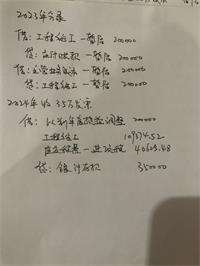 2023年分录
借：工程施工—暂估 200000
贷：应付账款—暂估 200000
借：主营业务成本—暂估 200000
贷：工程施工—暂估 200000
2024年收35万发票
借：以前年度损益调整 200000
工程施工 109374.52
应交税费—进项税 40625.48
贷：银行存款 350000